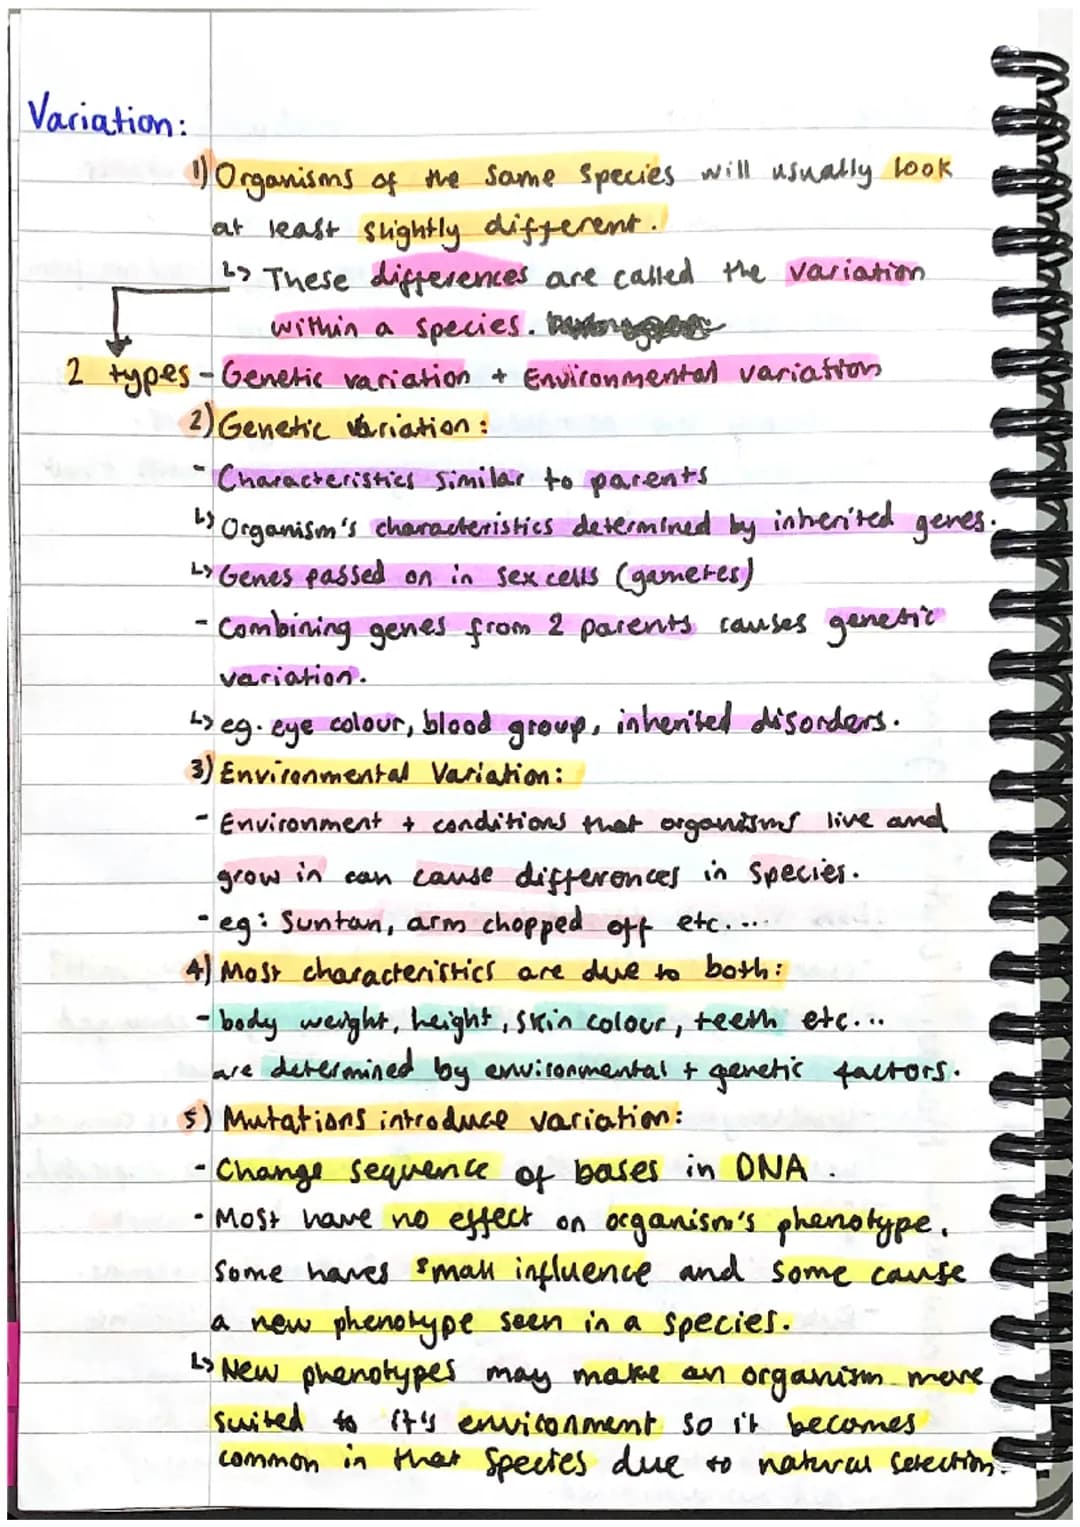 Variation:
1) Organisms of the same species will usually look
at least slightly different.
↳ These differences are called the variation
within a species.
2 types - Genetic variation + Environmental variation
2) Genetic variation:
- Characteristics similar to parents
↳ Organism's characteristics determined by inherited genes.
↳ Genes passed on in sex cells (gametes)
- Combining genes from 2 parents causes genetic
variation.
↳ eg. eye colour, blood group, inherited disorders.
3) Environmental Variation:
- Environment + conditions that organisms live and
grow in can cause differences in species.
- eg: Suntan, arm chopped off etc....
4) Most characteristics are due to both:
- body weight, height, skin colour, teeth etc...
are determined by environmental + genetic factors.
5) Mutations introduce variation:
- Change sequence of bases in DNA.
- Most have no effect on organism's phenotype.
Some haves small influence and some cause
a new phenotype seen in a species.
↳ New phenotypes may make an organism more
suited to it's environment so it becomes
common in that species due to natural selection.